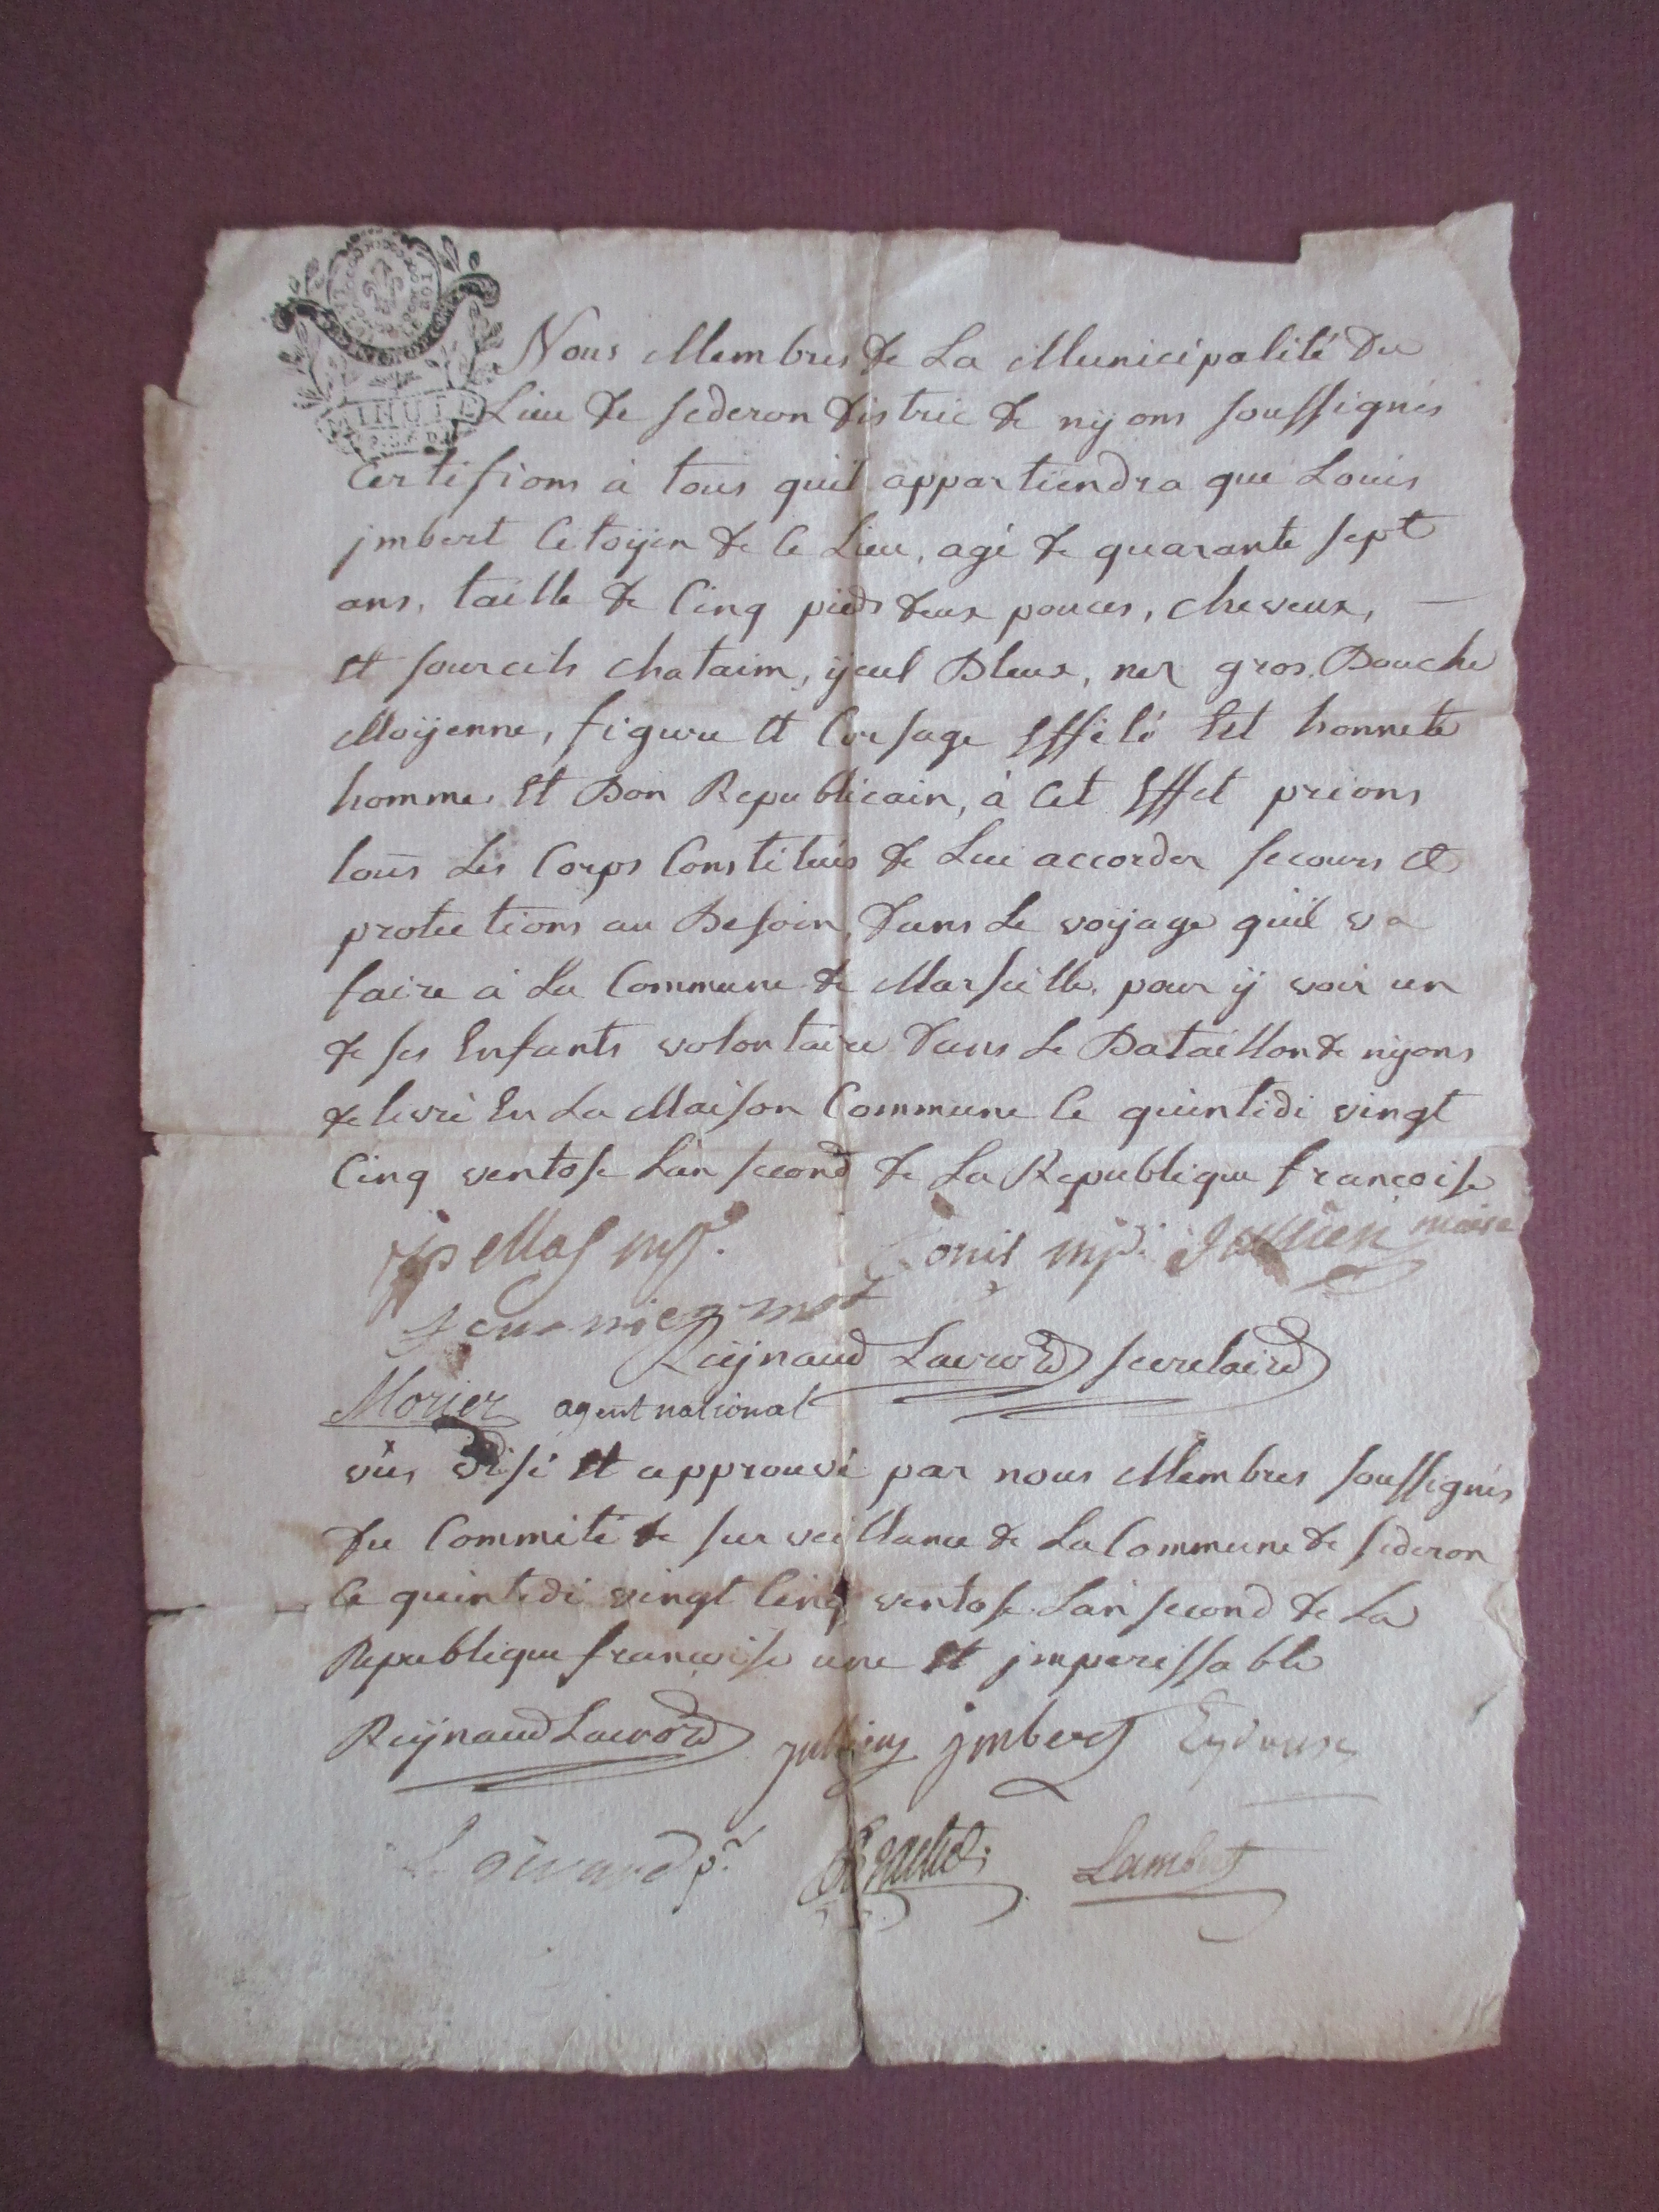 LA LOI
LE ROI
MINUTE
Nous Membres de La Municipalité du
Lieu de sederon distric de nÿons soussignés
Certifions à tous quil appartiendra que Louis
jmbert Citoÿen de Ce Lieu, agé de quarante sept
ans, taille de Cinq pieds deux pouces, cheveux,
Et sourcils chatains, ÿeul Bleux, nez gros, Bouche
Moÿenne, figure Et Corsage Effilé Est honnete
homme Et Bon Republicain, à Cet Effet prions
tous Les Corps Constitués de Lui accorder secours Et
protections au Besoin, dans Le voÿage quil va
faire à La Commune de Marseille, pour ÿ voir un
de ses Enfants volontaire dans Le Bataillon de nÿons
delivré En La Maison Commune Ce quintidi vingt
Cinq ventose Lan second de La Republique françoise
Bonis mpl. Jullien maire
Reÿnaud Lacroix secretaire
Morier agent national
vû, visé Et approuvé par nous Membres soussignés
du Commité de surveillance de La Commune de sederon
Ce quintidi vingt Cinq ventose Lan second de La
Republique françoise une Et jmperissable
Reÿnaud Lacroix Jullien jmbert
Lambert